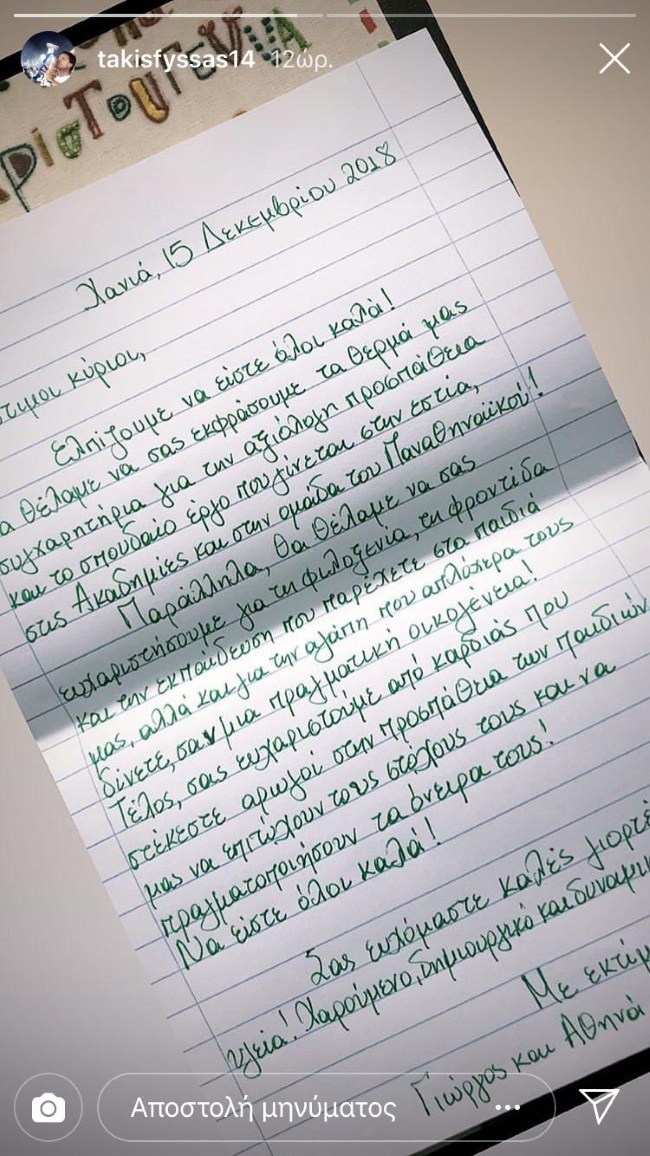 takisfyssas14 12ώρ.
ριστουγεννα
Χανιά, 15 Δεκεμβρίου 2018
τιμοι κύριοι,
Ελπίζουμε να είστε όλοι καλά!
α θέλαμε να σας εκφράσουμε τα θερμά μας
συγχαρητήρια για την αξιόλογη προσπάθεια
και το σπουδαίο έργο που γίνεται στην εστία,
στις Ακαδημίες και στην ομάδα του Παναθηναϊκού!
Παράλληλα, θα θέλαμε να σας
ευχαριστήσουμε για τη φιλοξενία, τη φροντίδα
και την εκπαίδευση που παρέχετε στα παιδιά
μας, αλλά και για την αγάπη που απλόχερα τους
δίνετε, σαν μια πραγματική οικογένεια!
Τέλος, σας ευχαριστούμε από καρδιάς που
στέκεστε αρωγοί στην προσπάθεια των παιδιών
μας να επιτύχουν τους στόχους τους και να
πραγματοποιήσουν τα όνειρα τους!
Να είστε όλοι καλά!
Σας ευχόμαστε καλές γιορτέ
υγεία! Χαρούμενο, δημιουργικό και δυναμικ
Με εκτίμ
Γιώργος και Αθηνά
Αποστολή μηνύματος